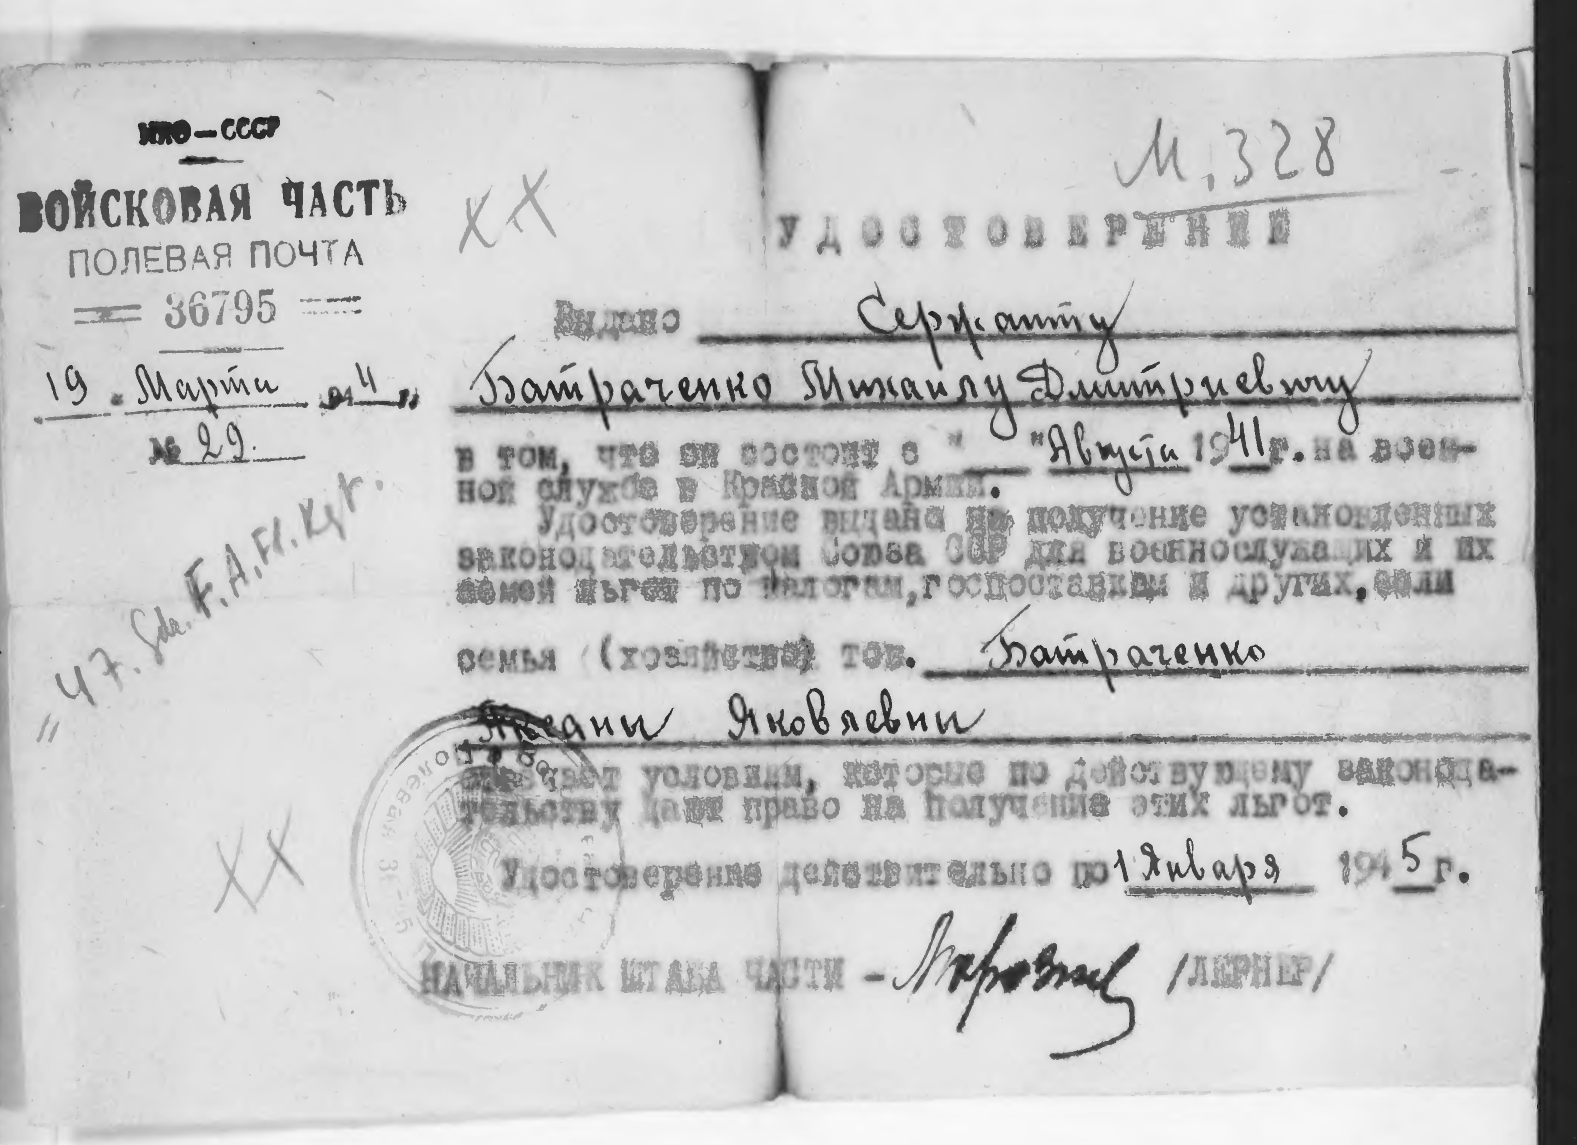 НКО — СССР
ВОЙСКОВАЯ ЧАСТЬ
ПОЛЕВАЯ ПОЧТА
36795
19 . Марта 1944 г.
№ 29.
XX
М. 328
УДОСТОВЕРЕНИЕ
Выдано Сержанту
Батраченко Михаилу Дмитриевичу
в том, что он состоит с " " Августа 1941 г. на воен-
ной службе в Красной Армии.
Удостоверение выдано на получение установленных
законодательством Союза ССР для военнослужащих и их
семей льгот по налогам, госпоставкам и других, если
семья (хозяйство) тов. Батраченко
Яковлевны
отвечает условиям, которые по действующему законода-
тельству дают право на получение этих льгот.
Удостоверение действительно по 1 Января 1945 г.
НАЧАЛЬНИК ШТАБА ЧАСТИ – /ЛЕРНЕР/
= 47. F.A.Fl.Rgt.
XX